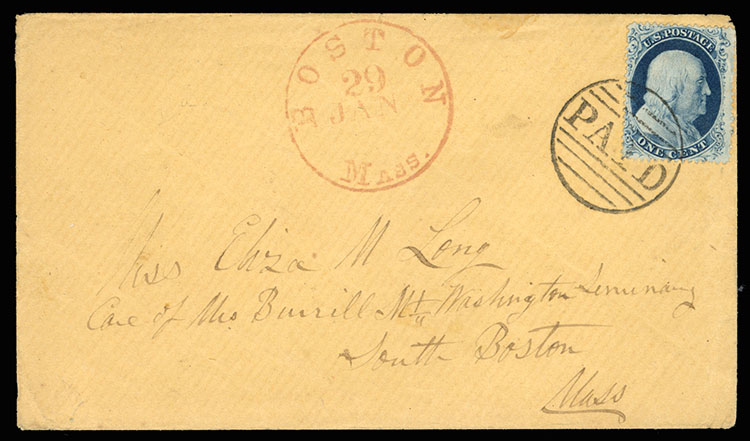 BOSTON
29
JAN
MASS.
U.S. POSTAGE
ONE CENT
PAID
Miss Eliza M Long
Care of Mrs Burrill Mt Washington Seminary
South Boston
Mass